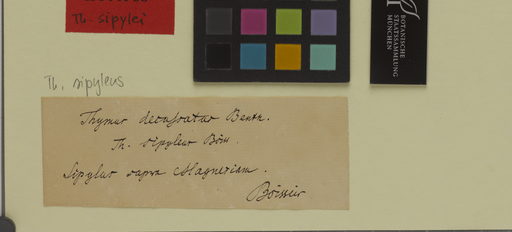 Th. sipylei
BOTANISCHE
STAATSSAMMLUNG
MÜNCHEN
Th. sipyleus
Thymus decussatus Benth.
Th. Sipyleus Boiss.
Sipylus supra Magnesiam.
Boissier